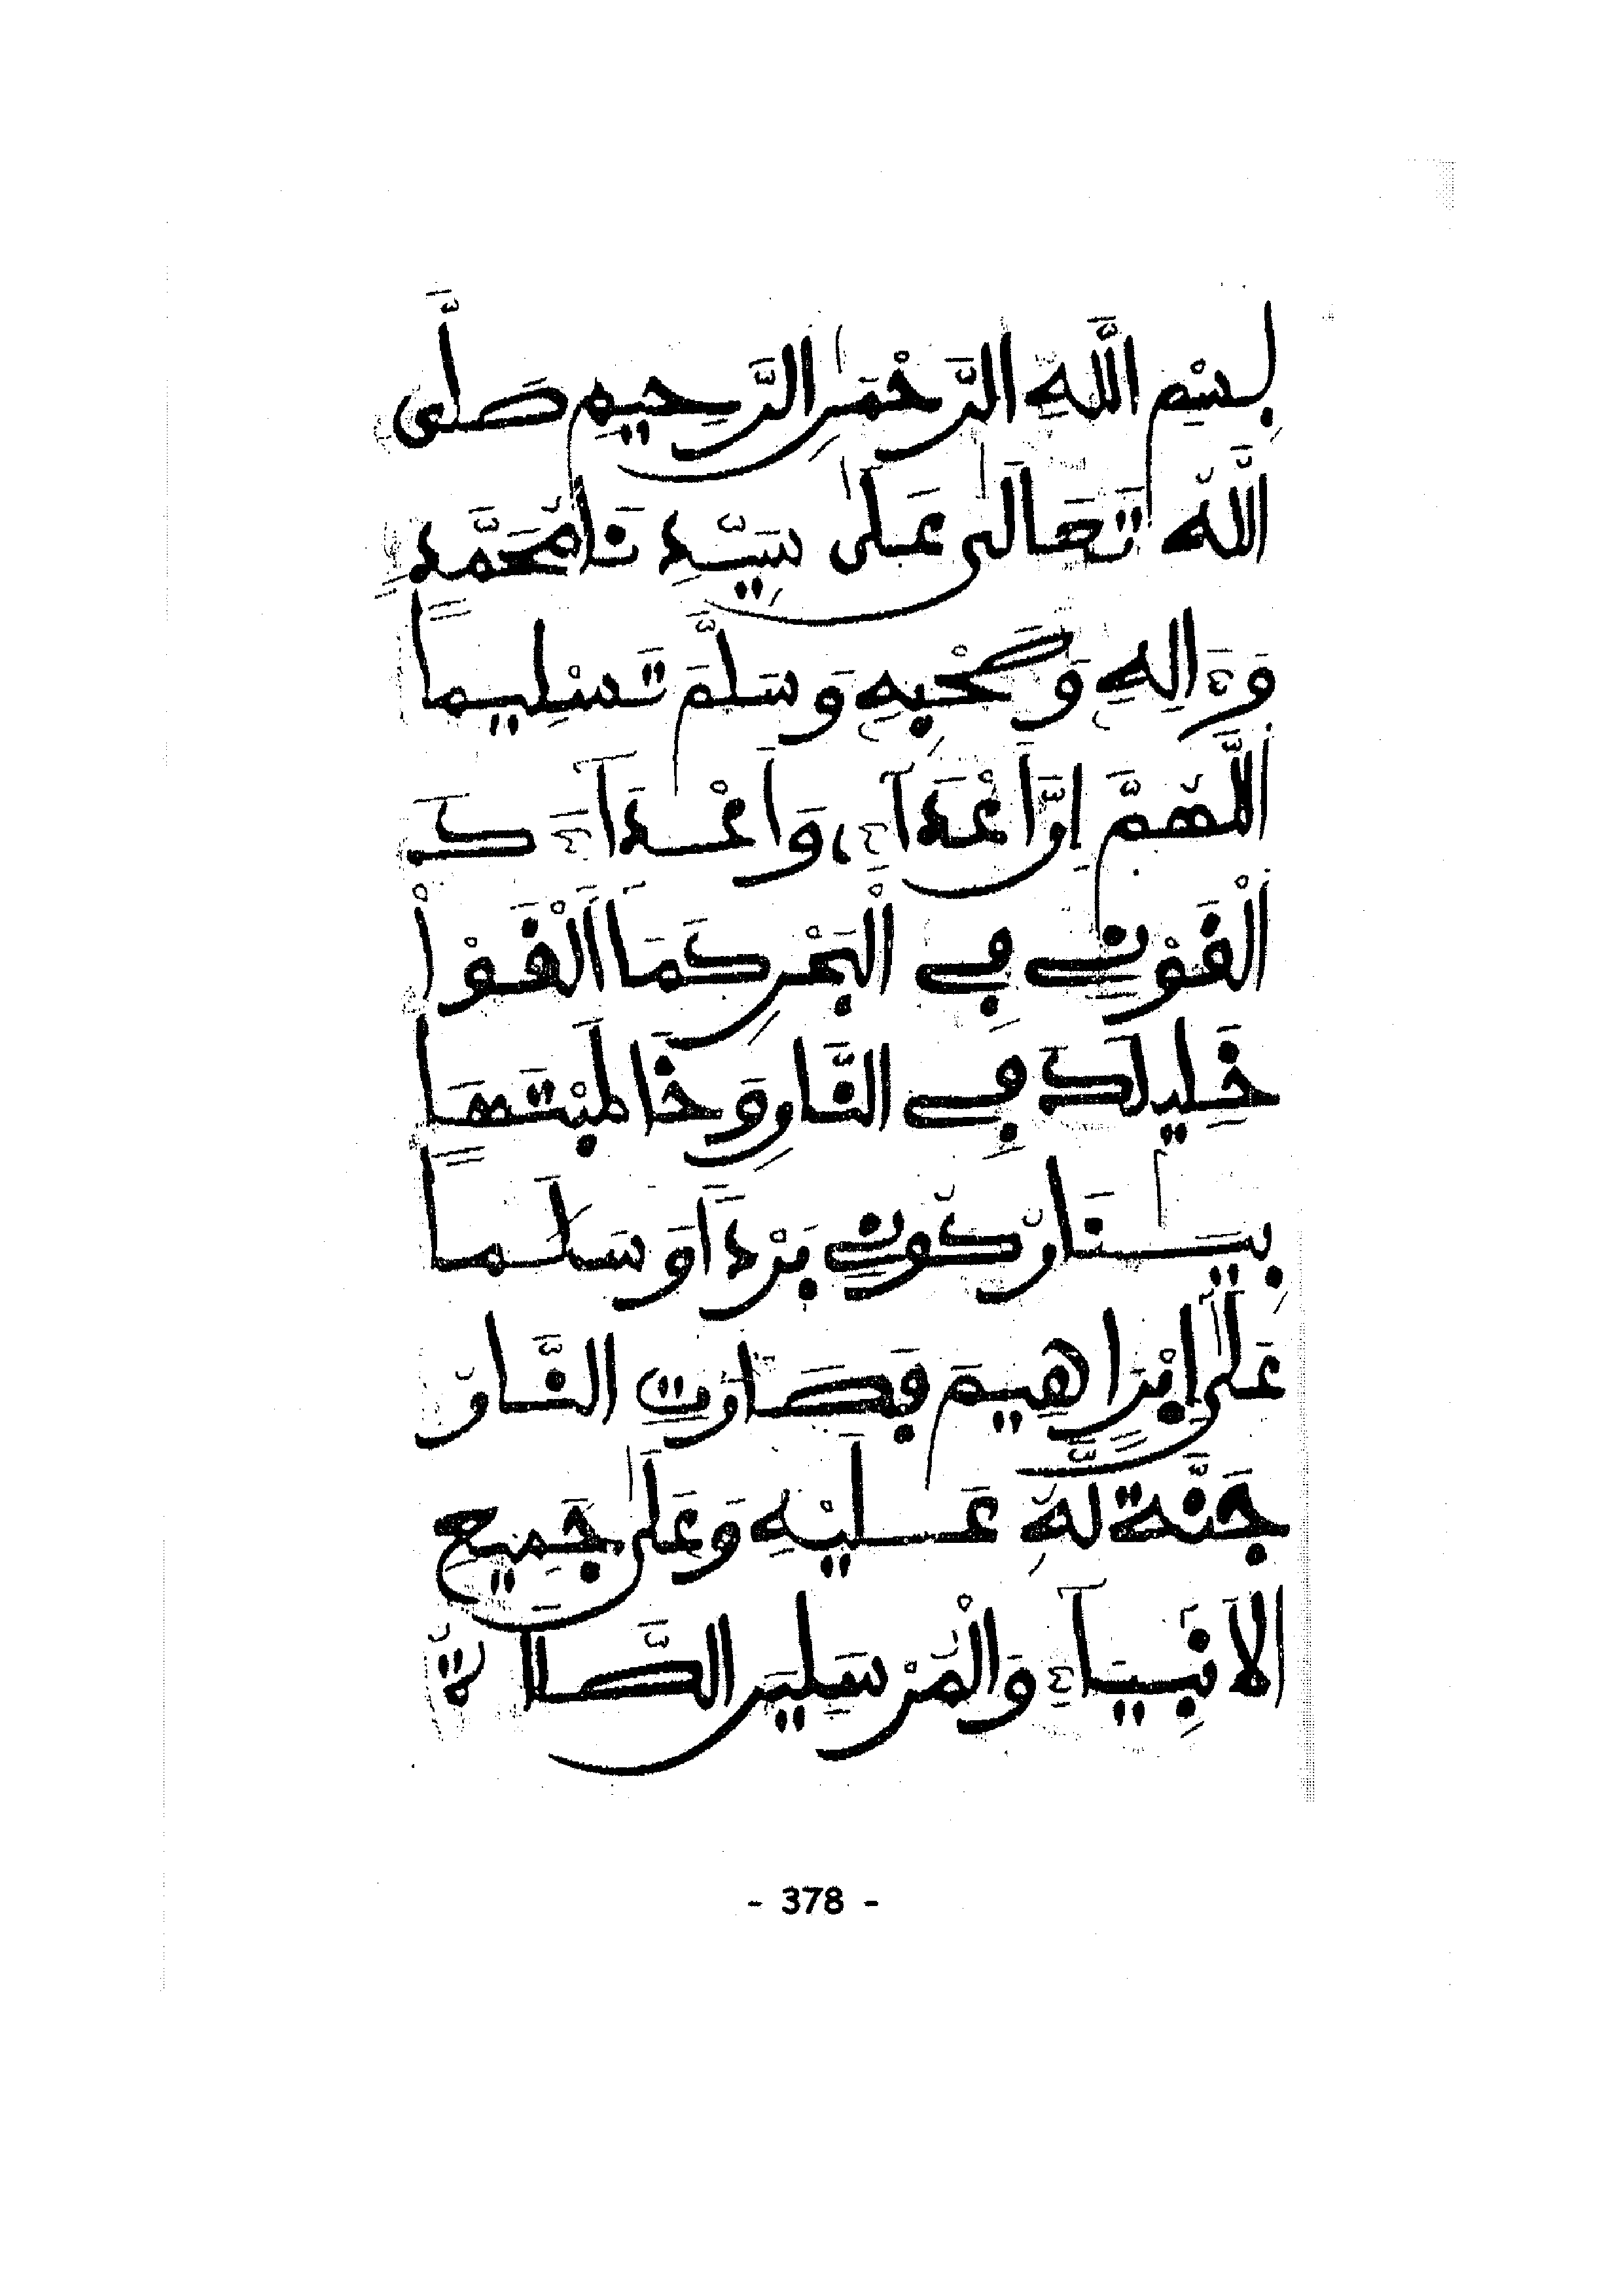 بِسْمِ اللَّهِ الرَّحْمَٰنِ الرَّحِيمِ صَلَّى
اللَّهُ تَعَالَىٰ عَلَىٰ سَيِّدِنَا مُحَمَّدٍ
وَءَالِهِ وَصَحْبِهِ وَسَلَّمَ تَسْلِيمًا
اللَّهُمَّ إِنَّ أَعْدَآءِي وَأَعْدَآءَكَ
أَلْقَوْنِي فِي الْبَحْرِ كَمَا أَلْقَوْاْ
خَلِيلَكَ فِي النَّارِ وَخَاطَبْتَهَا
بِيَٰنَارُ كُونِي بَرْدًا وَسَلَٰمًا
عَلَىٰ إِبْرَاهِيمَ فَصَارَتِ النَّارُ
جَنَّةً لَّهُ عَلَيْهِ وَعَلَىٰ جَمِيعِ
الَانْبِيَآءِ وَالْمُرْسَلِينَ الصَّلَاةُ
- 378 -